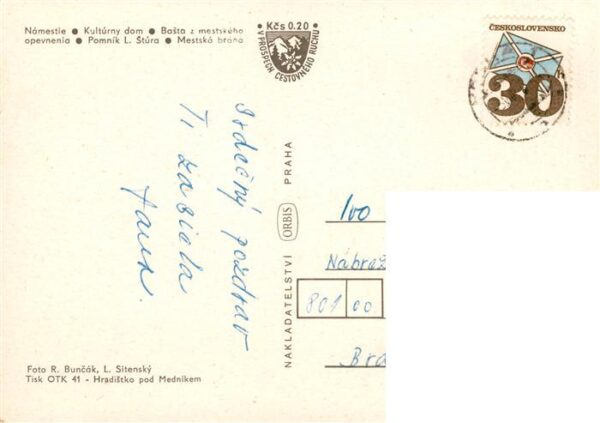 Námestie ● Kultúrny dom ● Bašta z mestského
opevnenia ● Pomník L. Štúra ● Mestská brána
Kčs 0.20
V PROSPECH CESTOVNÉHO RUCHU
ČESKOSLOVENSKO
30
Srdečný pozdrav
Ti zasiela
NAKLADATELSTVÍ ORBIS PRAHA
Ivo
Nábrež
801 00
Bra
Foto R. Bunčák, L. Sitenský
Tisk OTK 41 - Hradištko pod Medníkem